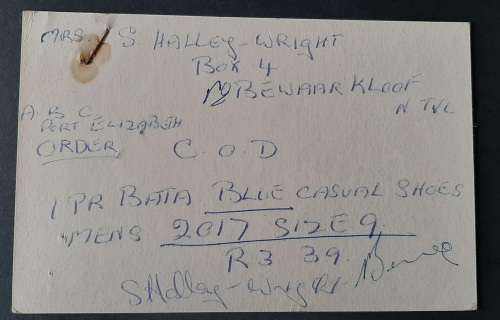 MRS. S HALLEY-WRIGHT
BOX 4
BEWAARKLOOF
N TVL
A B C
PORT ELIZABETH
ORDER C.O.D
1 PR BATA BLUE CASUAL SHOES
MENS 2017 SIZE 9
R3 39.
SHalley-Wright